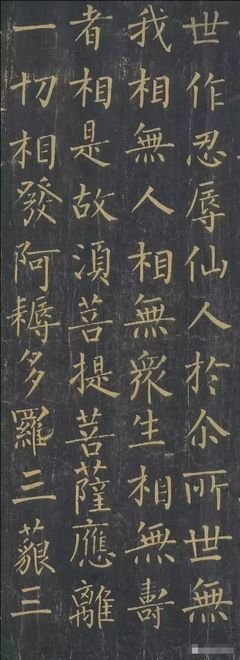 世作忍辱仙人於尒所世無
我相無人相無衆生相無壽
者相是故湏菩提菩薩應離
一切相發阿耨多羅三藐三